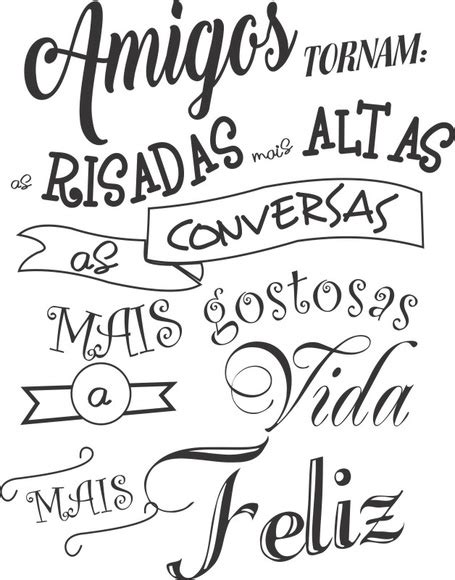 Amigos TORNAM:
as RISADAS mais ALTAS
as CONVERSAS
MAIS gostosas
a Vida
MAIS Feliz